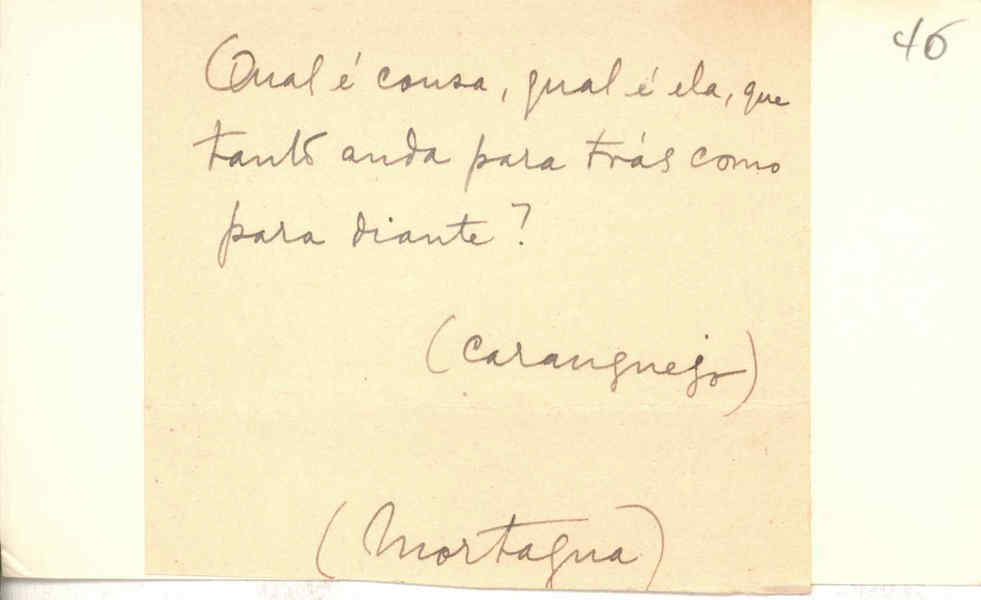 46
Qual é cousa, qual é ela, que
tanto anda para trás como
para diante?
(Caranguejo)
(Mortagua)